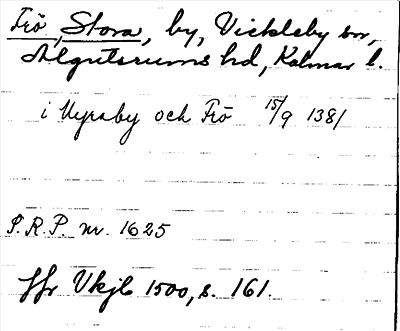 Frö, Stora, by, Vickleby sn,
Algutsrums hd, Kalmar l.
i Uyraby och Frö 15/9 1381
S.R.P. nr. 1625
jfr Vkjb 1500, s. 161.